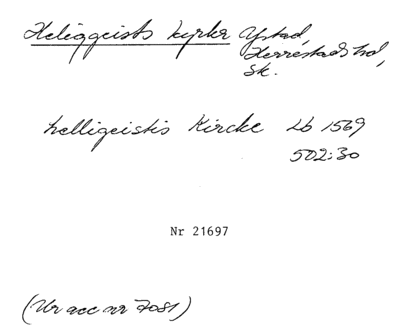 Heliggeists kyrka Ystad,
Herrestads hd,
Sk.
helligeistis Kircke Lb 1569
502:30
Nr 21697
(Ur acc nr 7081)